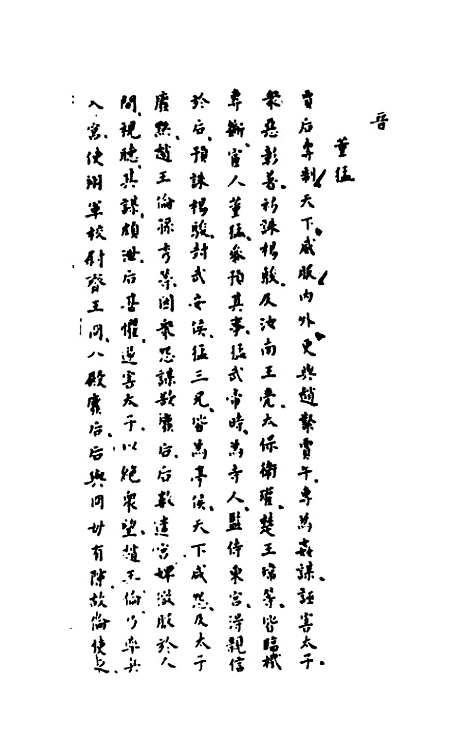 晉
董猛
賈后專制天下威服內外更與趙粲賈午專為姦謀誣害太子
衆惡彰著初誅楊駿及汝南王亮太保衛瓘楚王瑋等皆臨機
專斷宦人董猛參預其事猛武帝時為寺人監侍東宮得親信
於后預誅楊駿封武安侯猛三兄皆為亭侯天下咸怨及太子
廢黜趙王倫孫秀等因衆怨謀欲廢后后數遣宮婢微服於人
間視聽其謀頗泄后甚懼遂害太子以絕衆望趙王倫乃率兵
入宮使翊軍校尉齊王冏入殿廢后后與冏母有隙故倫使之